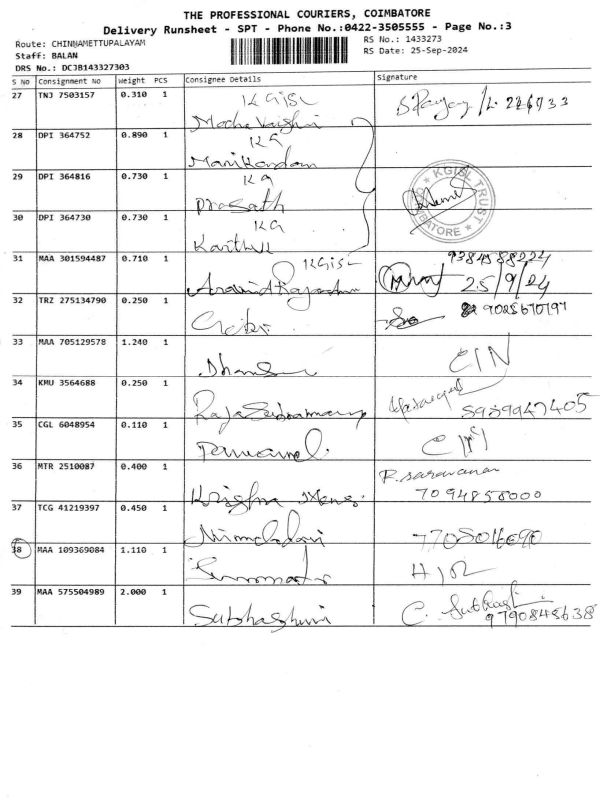 THE PROFESSIONAL COURIERS, COIMBATORE
Delivery Runsheet - SPT - Phone No.:0422-3505555 - Page No.:3
Route: CHINNAMETTUPALAYAM
RS No.: 1433273
Staff: BALAN
RS Date: 25-Sep-2024
DRS No.: DCJB143327303
S No Consignment No Weight PCS Consignee Details Signature
27 TNJ 7503157 0.310 1 KGISL
28 DPI 364752 0.890 1 KG
Manikandan
29 DPI 364816 0.730 1 KG
Prasath
KGISL TRUST
30 DPI 364730 0.730 1 KG
Karthik
31 MAA 301594487 0.710 1 KGISL
9384588224
25/9/24
32 TRZ 275134790 0.250 1
9025670797
33 MAA 705129578 1.240 1
CIN
34 KMU 3564688 0.250 1
5939947405
35 CGL 6048954 0.110 1
36 MTR 2510087 0.400 1 R. Saravanan
Krishna 7094858000
37 TCG 41219397 0.450 1
38 MAA 109369084 1.110 1
39 MAA 575504989 2.000 1
Subhashini C. Subhash
9790845638